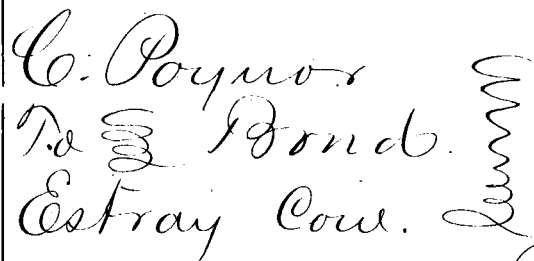 C. Poynor
To Bond.
Estray Cow.